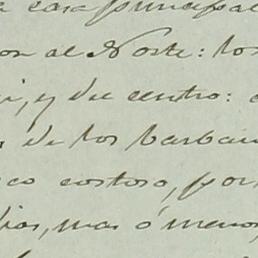 casa principal
al Norte: los
y du centro:
de los barban
co costoso, por
dias, mas ó menos,